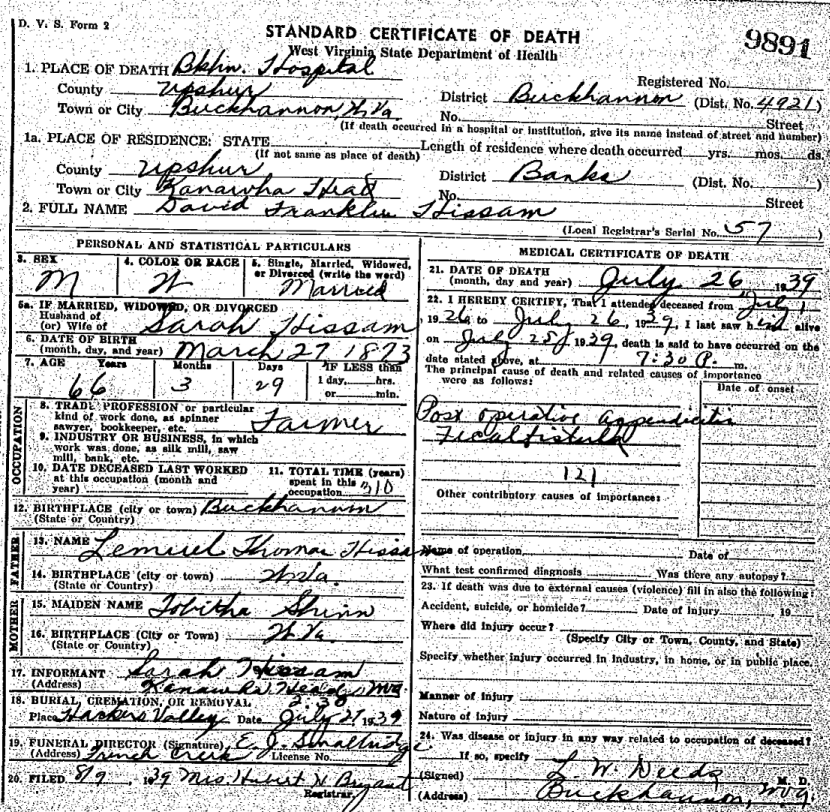 D. V. S. Form 2
STANDARD CERTIFICATE OF DEATH
9891
West Virginia State Department of Health
1. PLACE OF DEATH Bkhn. Hospital
Registered No.
County Upshur District Buckhannon (Dist. No. 4921)
Town or City Buckhannon, W. Va No. Street
(If death occurred in a hospital or institution, give its name instead of street and number)
1a. PLACE OF RESIDENCE: STATE Length of residence where death occurred yrs. mos. ds.
(If not same as place of death)
County Upshur District Banks (Dist. No. )
Town or City Kanawha Head No. Street
2. FULL NAME David Franklin Hissam
(Local Registrar's Serial No. 57 )
PERSONAL AND STATISTICAL PARTICULARS
3. SEX M
4. COLOR OR RACE W
5. Single, Married, Widowed, or Divorced (write the word) Married
5a. IF MARRIED, WIDOWED, OR DIVORCED
Husband of
(or) Wife of Sarah Hissam
6. DATE OF BIRTH
(month, day, and year) March 27 1873
7. AGE Years Months Days IF LESS than
66 3 29 1 day hrs.
or min.
OCCUPATION
8. TRADE, PROFESSION or particular
kind of work done, as spinner
sawyer, bookkeeper, etc. Farmer
9. INDUSTRY OR BUSINESS, in which
work was done, as silk mill, saw
mill, bank, etc.
10. DATE DECEASED LAST WORKED
at this occupation (month and
year)
11. TOTAL TIME (years)
spent in this
occupation
12. BIRTHPLACE (city or town) Buckhannon
(State or Country)
FATHER
13. NAME Lemuel Thomas Hissam
14. BIRTHPLACE (city or town) W Va
(State or Country)
MOTHER
15. MAIDEN NAME Tobitha Shinn
16. BIRTHPLACE (City or Town) W Va
(State or Country)
17. INFORMANT Sarah Hissam
(Address) Kanawha Head, W Va
18. BURIAL, CREMATION, OR REMOVAL 2:30
Place Hackers Valley Date July 27 1939
19. FUNERAL DIRECTOR (Signature) E. J. Smallridge
(Address) French Creek License No.
20. FILED 8/9 1939 Mrs. Hubert W Bryant
Registrar.
MEDICAL CERTIFICATE OF DEATH
21. DATE OF DEATH
(month, day and year) July 26 1939
22. I HEREBY CERTIFY, That I attended deceased from July 1
, 1926, to July 26, 1939, I last saw him alive
on July 25, 1939, death is said to have occurred on the
date stated above, at 7:30 P. m.
The principal cause of death and related causes of importance
were as follows:
Date of onset
Post operative appendicitis
Fecal fistula
121
Other contributory causes of importance:
Name of operation Date of
What test confirmed diagnosis Was there any autopsy?
23. If death was due to external causes (violence) fill in also the following:
Accident, suicide, or homicide? Date of injury 19
Where did injury occur?
(Specify City or Town, County, and State)
Specify whether injury occurred in industry, in home, or in public place.
Manner of Injury
Nature of Injury
24. Was disease or injury in any way related to occupation of deceased?
If so, specify
(Signed) L. W. Deeds M. D.
(Address) Buckhannon, W Va